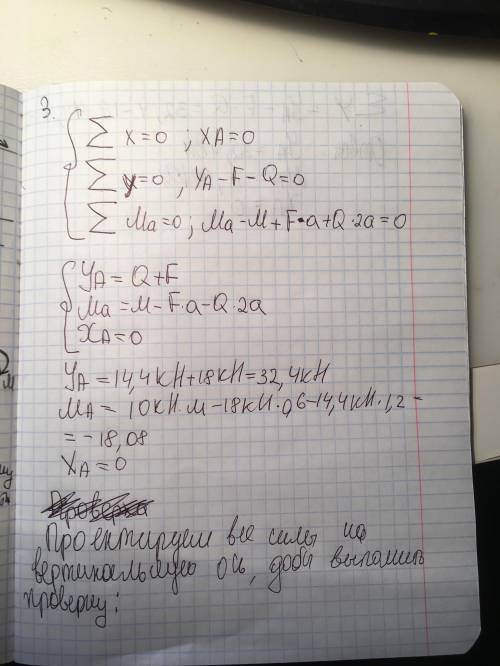 3.
∑ X=0 ; XA=0
∑ y=0 ; YA-F-Q=0
∑ Ma=0 ; Ma-M+F•a+Q·2a=0
YA = Q+F
Ma = M-F·a-Q·2a
XA=0
YA=14,4кН+18кН=32,4кН
MA= 10кН·м-18кН·0,6-14,4кН·1,2=
=-18,08
XA=0
Проектируем все силы на
вертикальную ось, дабы выполнить
проверку: